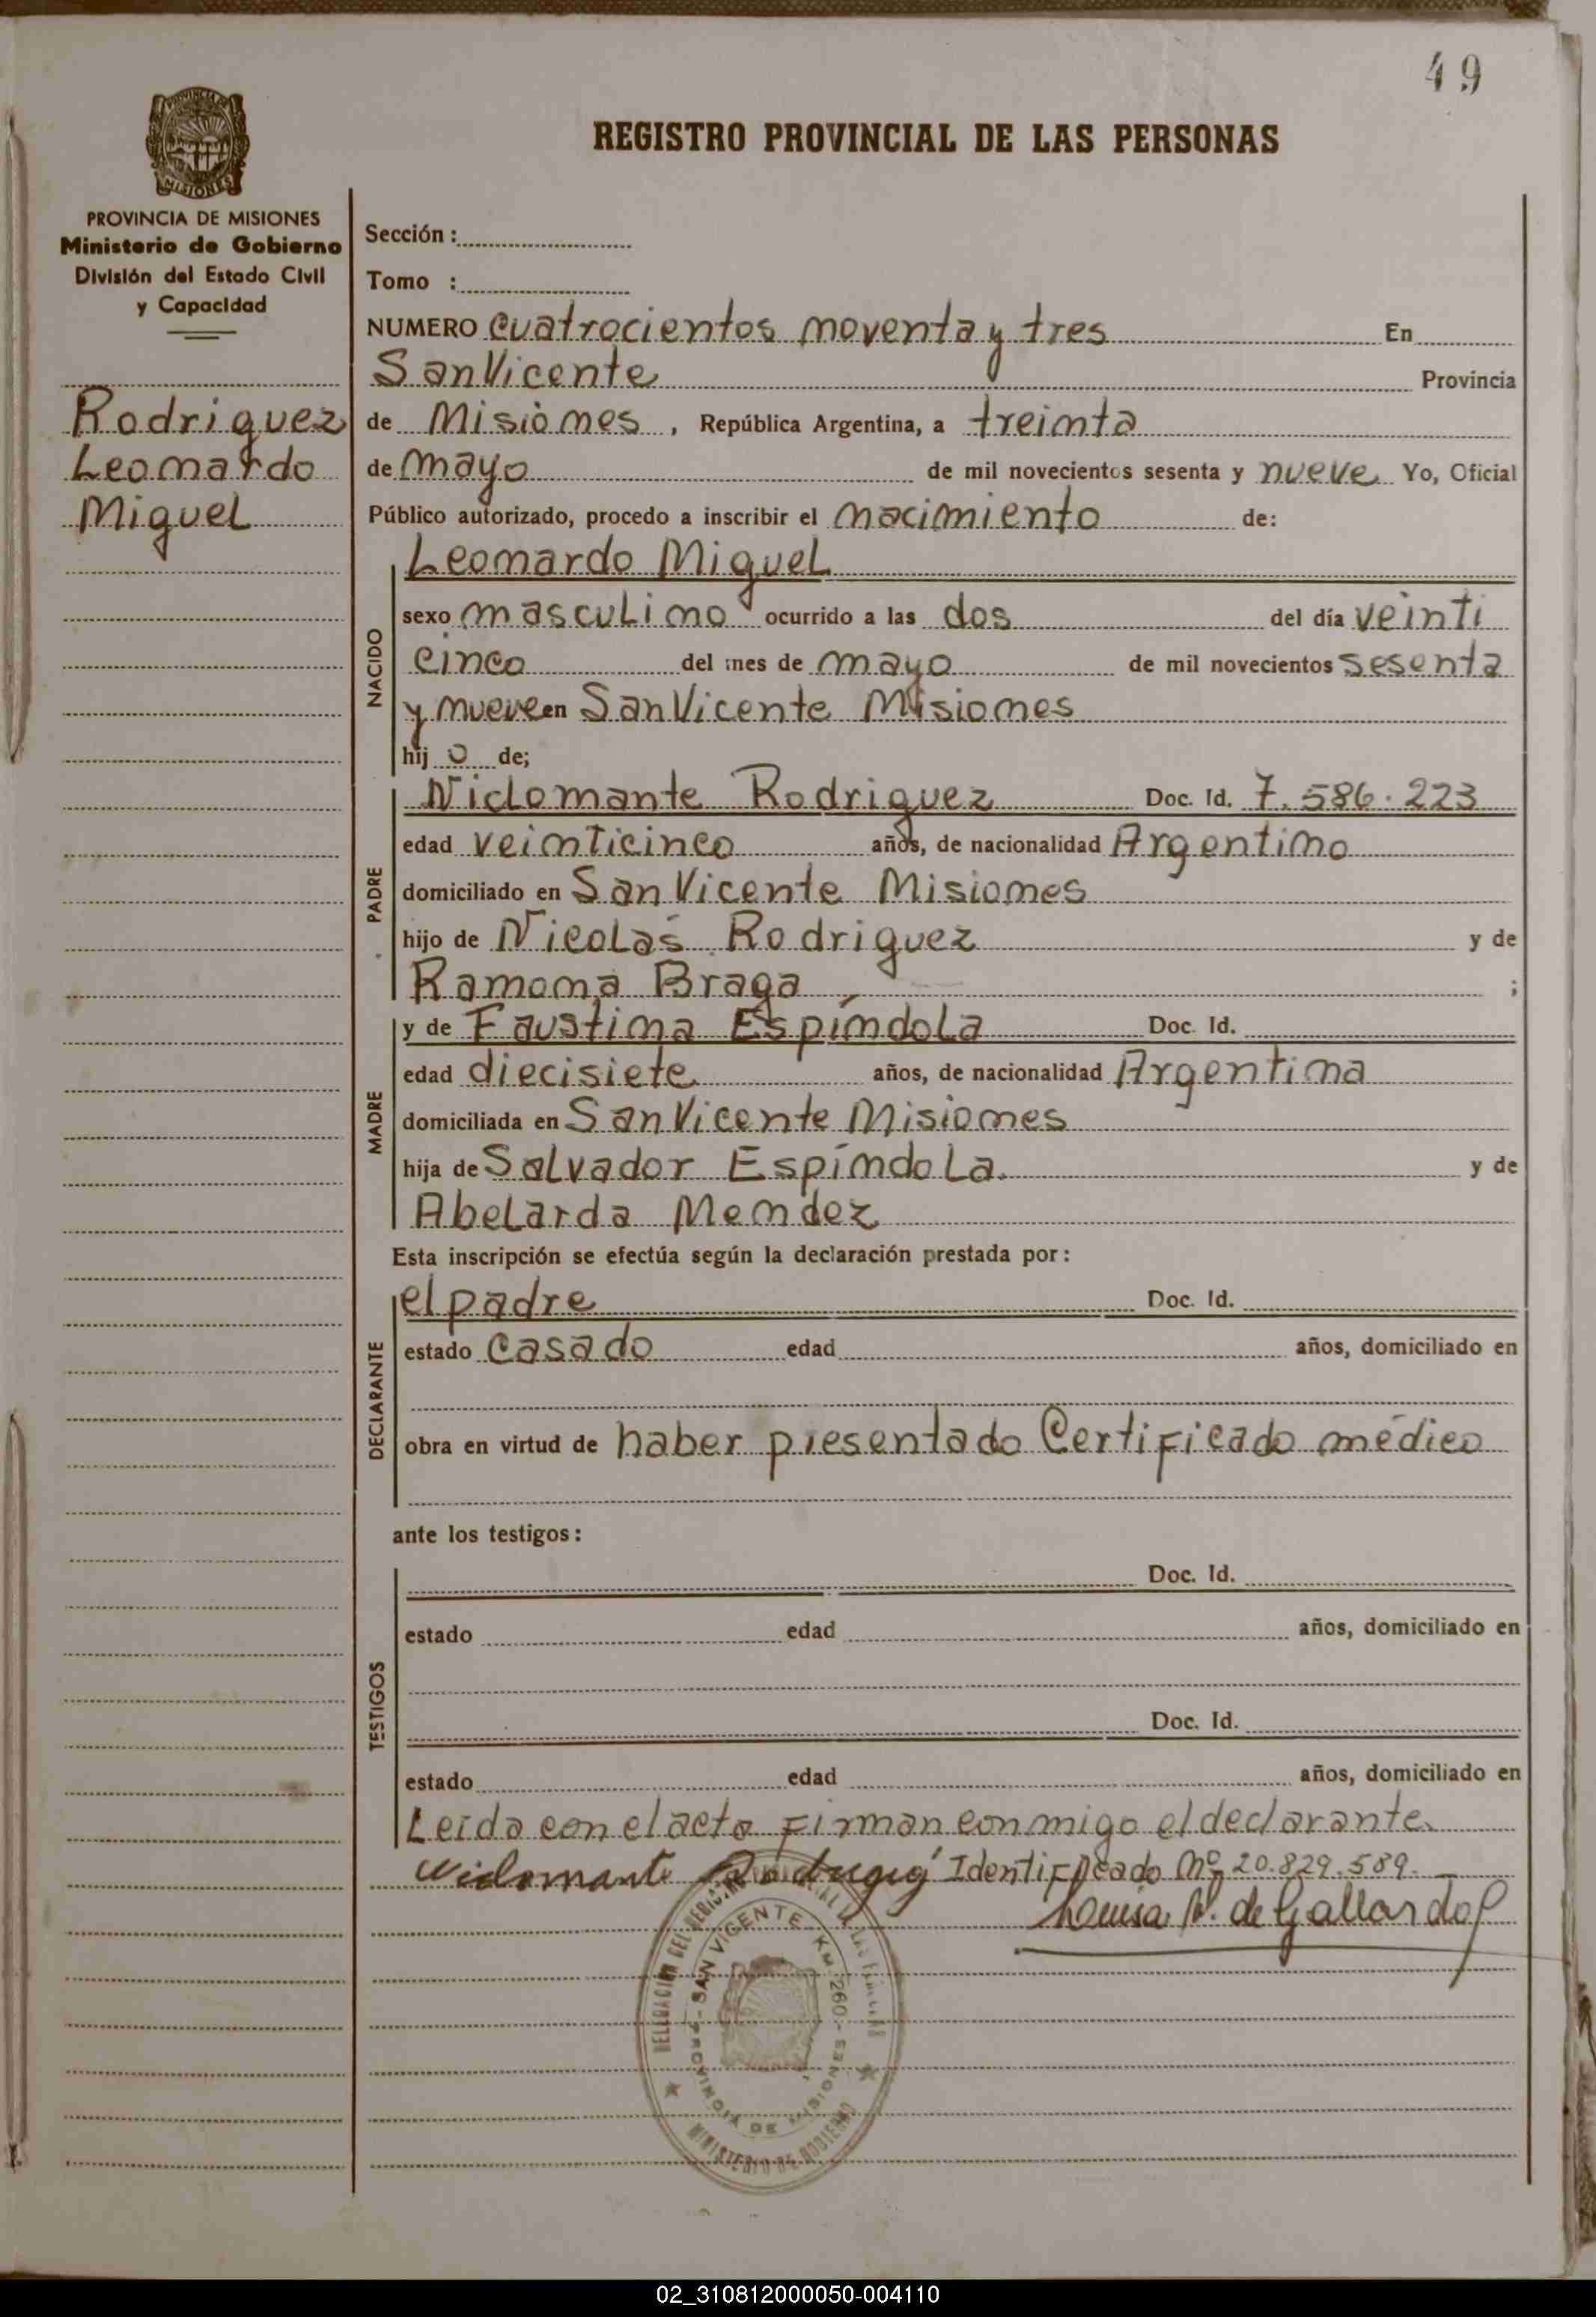 49
REGISTRO PROVINCIAL DE LAS PERSONAS
PROVINCIA DE MISIONES
Ministerio de Gobierno
División del Estado Civil
y Capacidad
Rodriguez
Leonardo
Miguel
Sección :
Tomo :
NUMERO cuatrocientos noventa y tres En
San Vicente Provincia
de Misiones , República Argentina, a treinta
de mayo de mil novecientos sesenta y nueve Yo, Oficial
Público autorizado, procedo a inscribir el nacimiento de:
NACIDO
Leonardo Miguel
sexo masculino ocurrido a las dos del día veinti
cinco del mes de mayo de mil novecientos sesenta
y nueve en San Vicente Misiones
hij o de;
PADRE
Niclomante Rodriguez Doc. Id. 7.586.223
edad veinticinco años, de nacionalidad Argentino
domiciliado en San Vicente Misiones
hijo de Nicolás Rodriguez y de
Ramona Braga ;
MADRE
y de Faustina Espíndola Doc. Id.
edad diecisiete años, de nacionalidad Argentina
domiciliada en San Vicente Misiones
hija de Salvador Espíndola. y de
Abelarda Mendez
Esta inscripción se efectúa según la declaración prestada por:
DECLARANTE
el padre Doc. Id.
estado casado edad años, domiciliado en
obra en virtud de haber presentado Certificado médico
ante los testigos:
TESTIGOS
Doc. Id.
estado edad años, domiciliado en
Doc. Id.
estado edad años, domiciliado en
Leida con el acta firman conmigo el declarante.
Identificado Nº 20.829.589.
Luisa de Gallardo
DELEGACION DEL REGISTRO PROVINCIAL DE LAS PERSONAS
SAN VICENTE KM. 260 - MISIONES
PROVINCIA DE MISIONES
MINISTERIO DE GOBIERNO
02_310812000050-004110